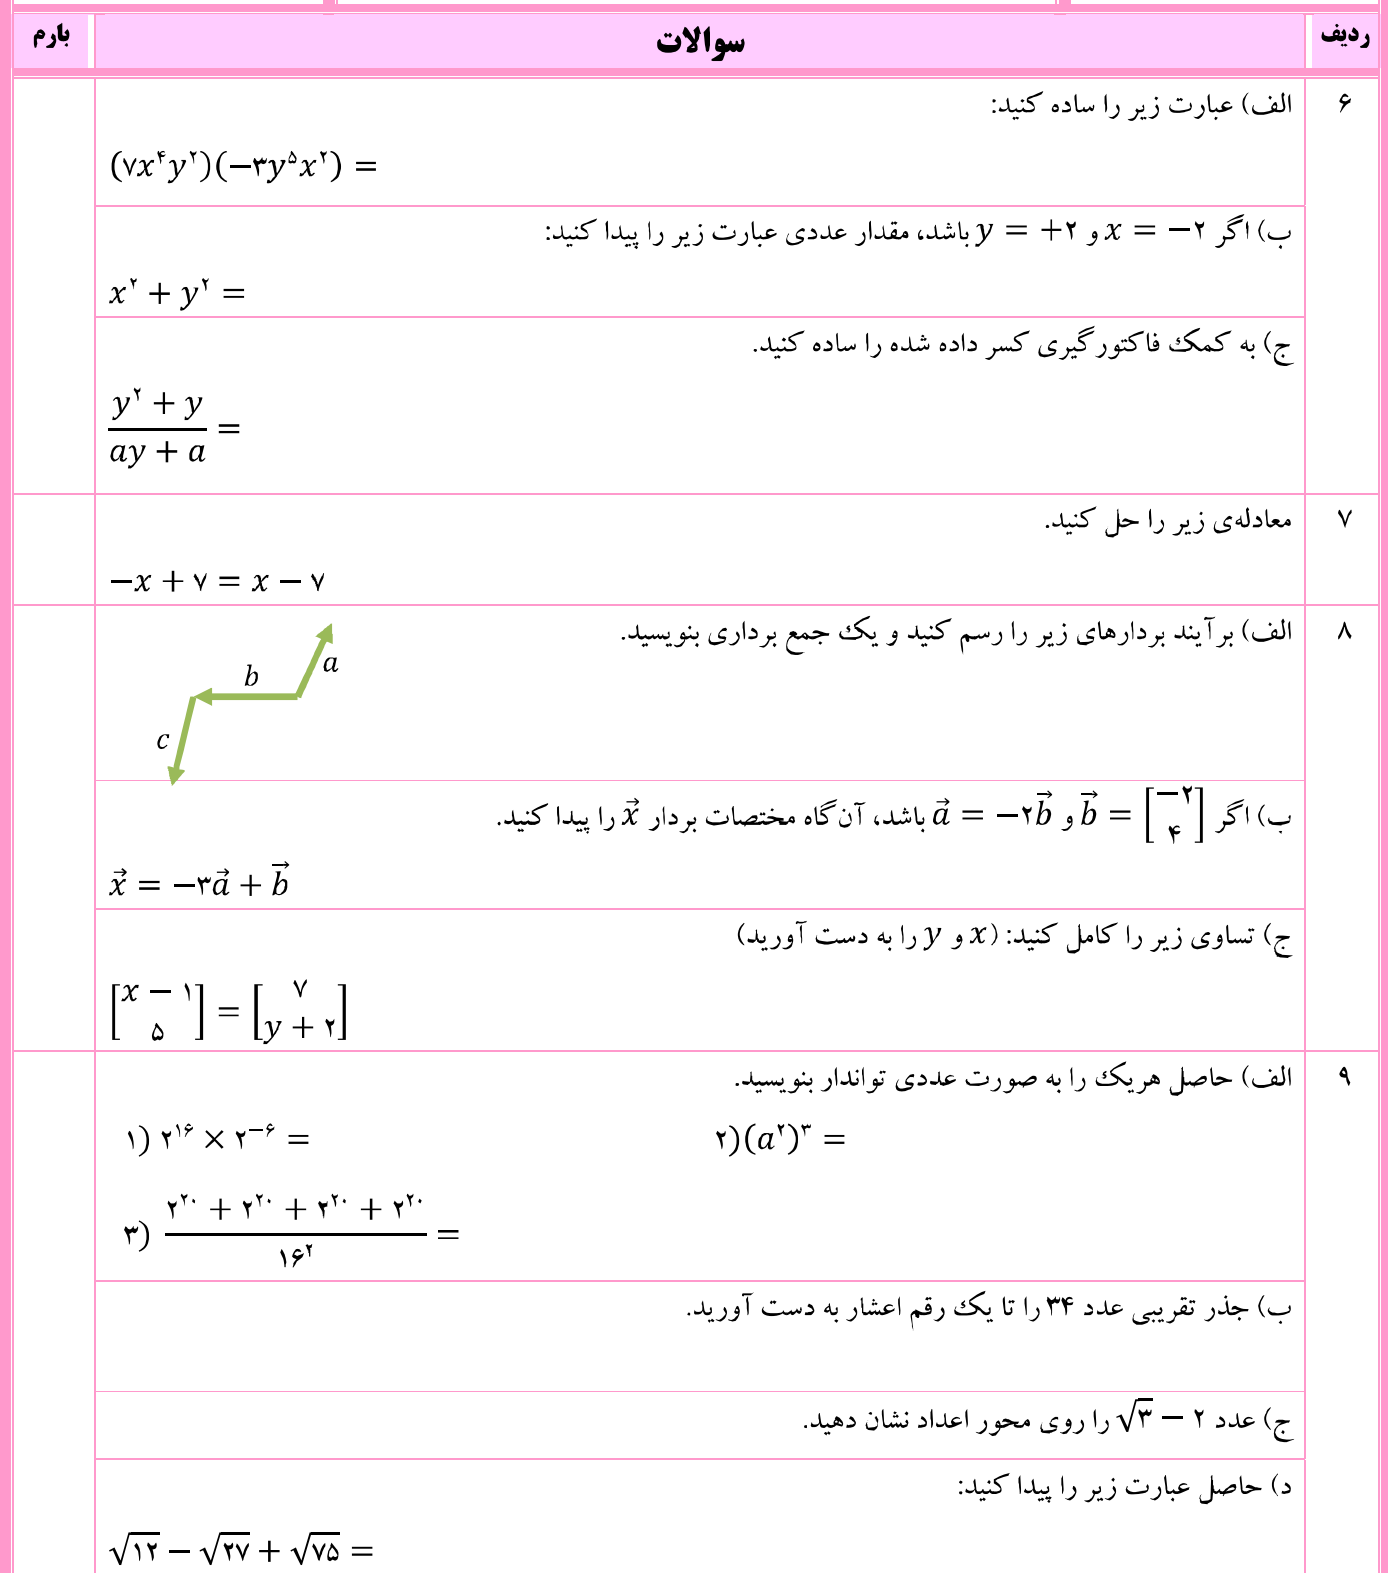 ردیف سوالات بارم
۶ الف) عبارت زیر را ساده کنید:
(۷x^۴y^۲)(−۳y^۵x^۲) =
ب) اگر x = −۲ و y = +۲ باشد، مقدار عددی عبارت زیر را پیدا کنید:
x^۲ + y^۲ =
ج) به کمک فاکتورگیری کسر داده شده را ساده کنید.
(y^۲ + y)/(ay + a) =
۷ معادله‌ی زیر را حل کنید.
−x + ۷ = x − ۷
۸ الف) برآیند بردارهای زیر را رسم کنید و یک جمع برداری بنویسید.
a
b
c
ب) اگر b⃗ = [−۲ ۴] و a⃗ = −۲b⃗ باشد، آن‌گاه مختصات بردار x⃗ را پیدا کنید.
x⃗ = −۳a⃗ + b⃗
ج) تساوی زیر را کامل کنید: (x و y را به دست آورید)
[x − ۱ ۵] = [۷ y + ۲]
۹ الف) حاصل هریک را به صورت عددی تواندار بنویسید.
۱) ۲^۱۶ × ۲^−۶ = ۲)(a^۲)^۳ =
۳) (۲^۲۰ + ۲^۲۰ + ۲^۲۰ + ۲^۲۰)/۱۶^۲ =
ب) جذر تقریبی عدد ۳۴ را تا یک رقم اعشار به دست آورید.
ج) عدد √۳ − ۲ را روی محور اعداد نشان دهید.
د) حاصل عبارت زیر را پیدا کنید:
√۱۲ − √۲۷ + √۷۵ =